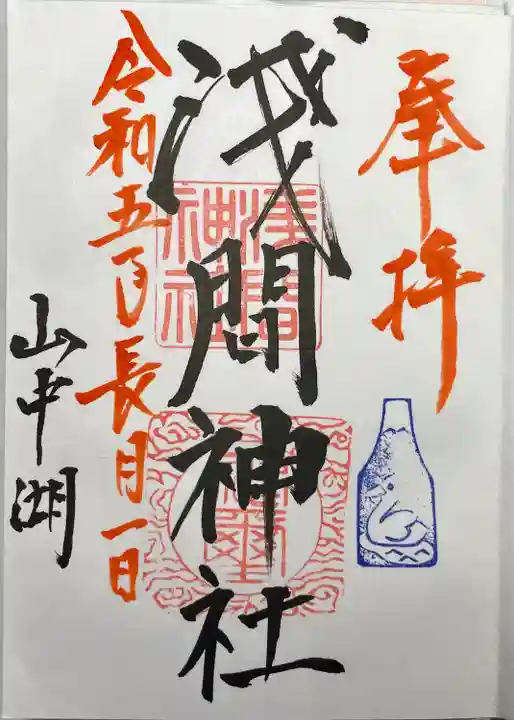 奉拝
浅間神社
浅間
神社
令和五年長月一日
山中湖